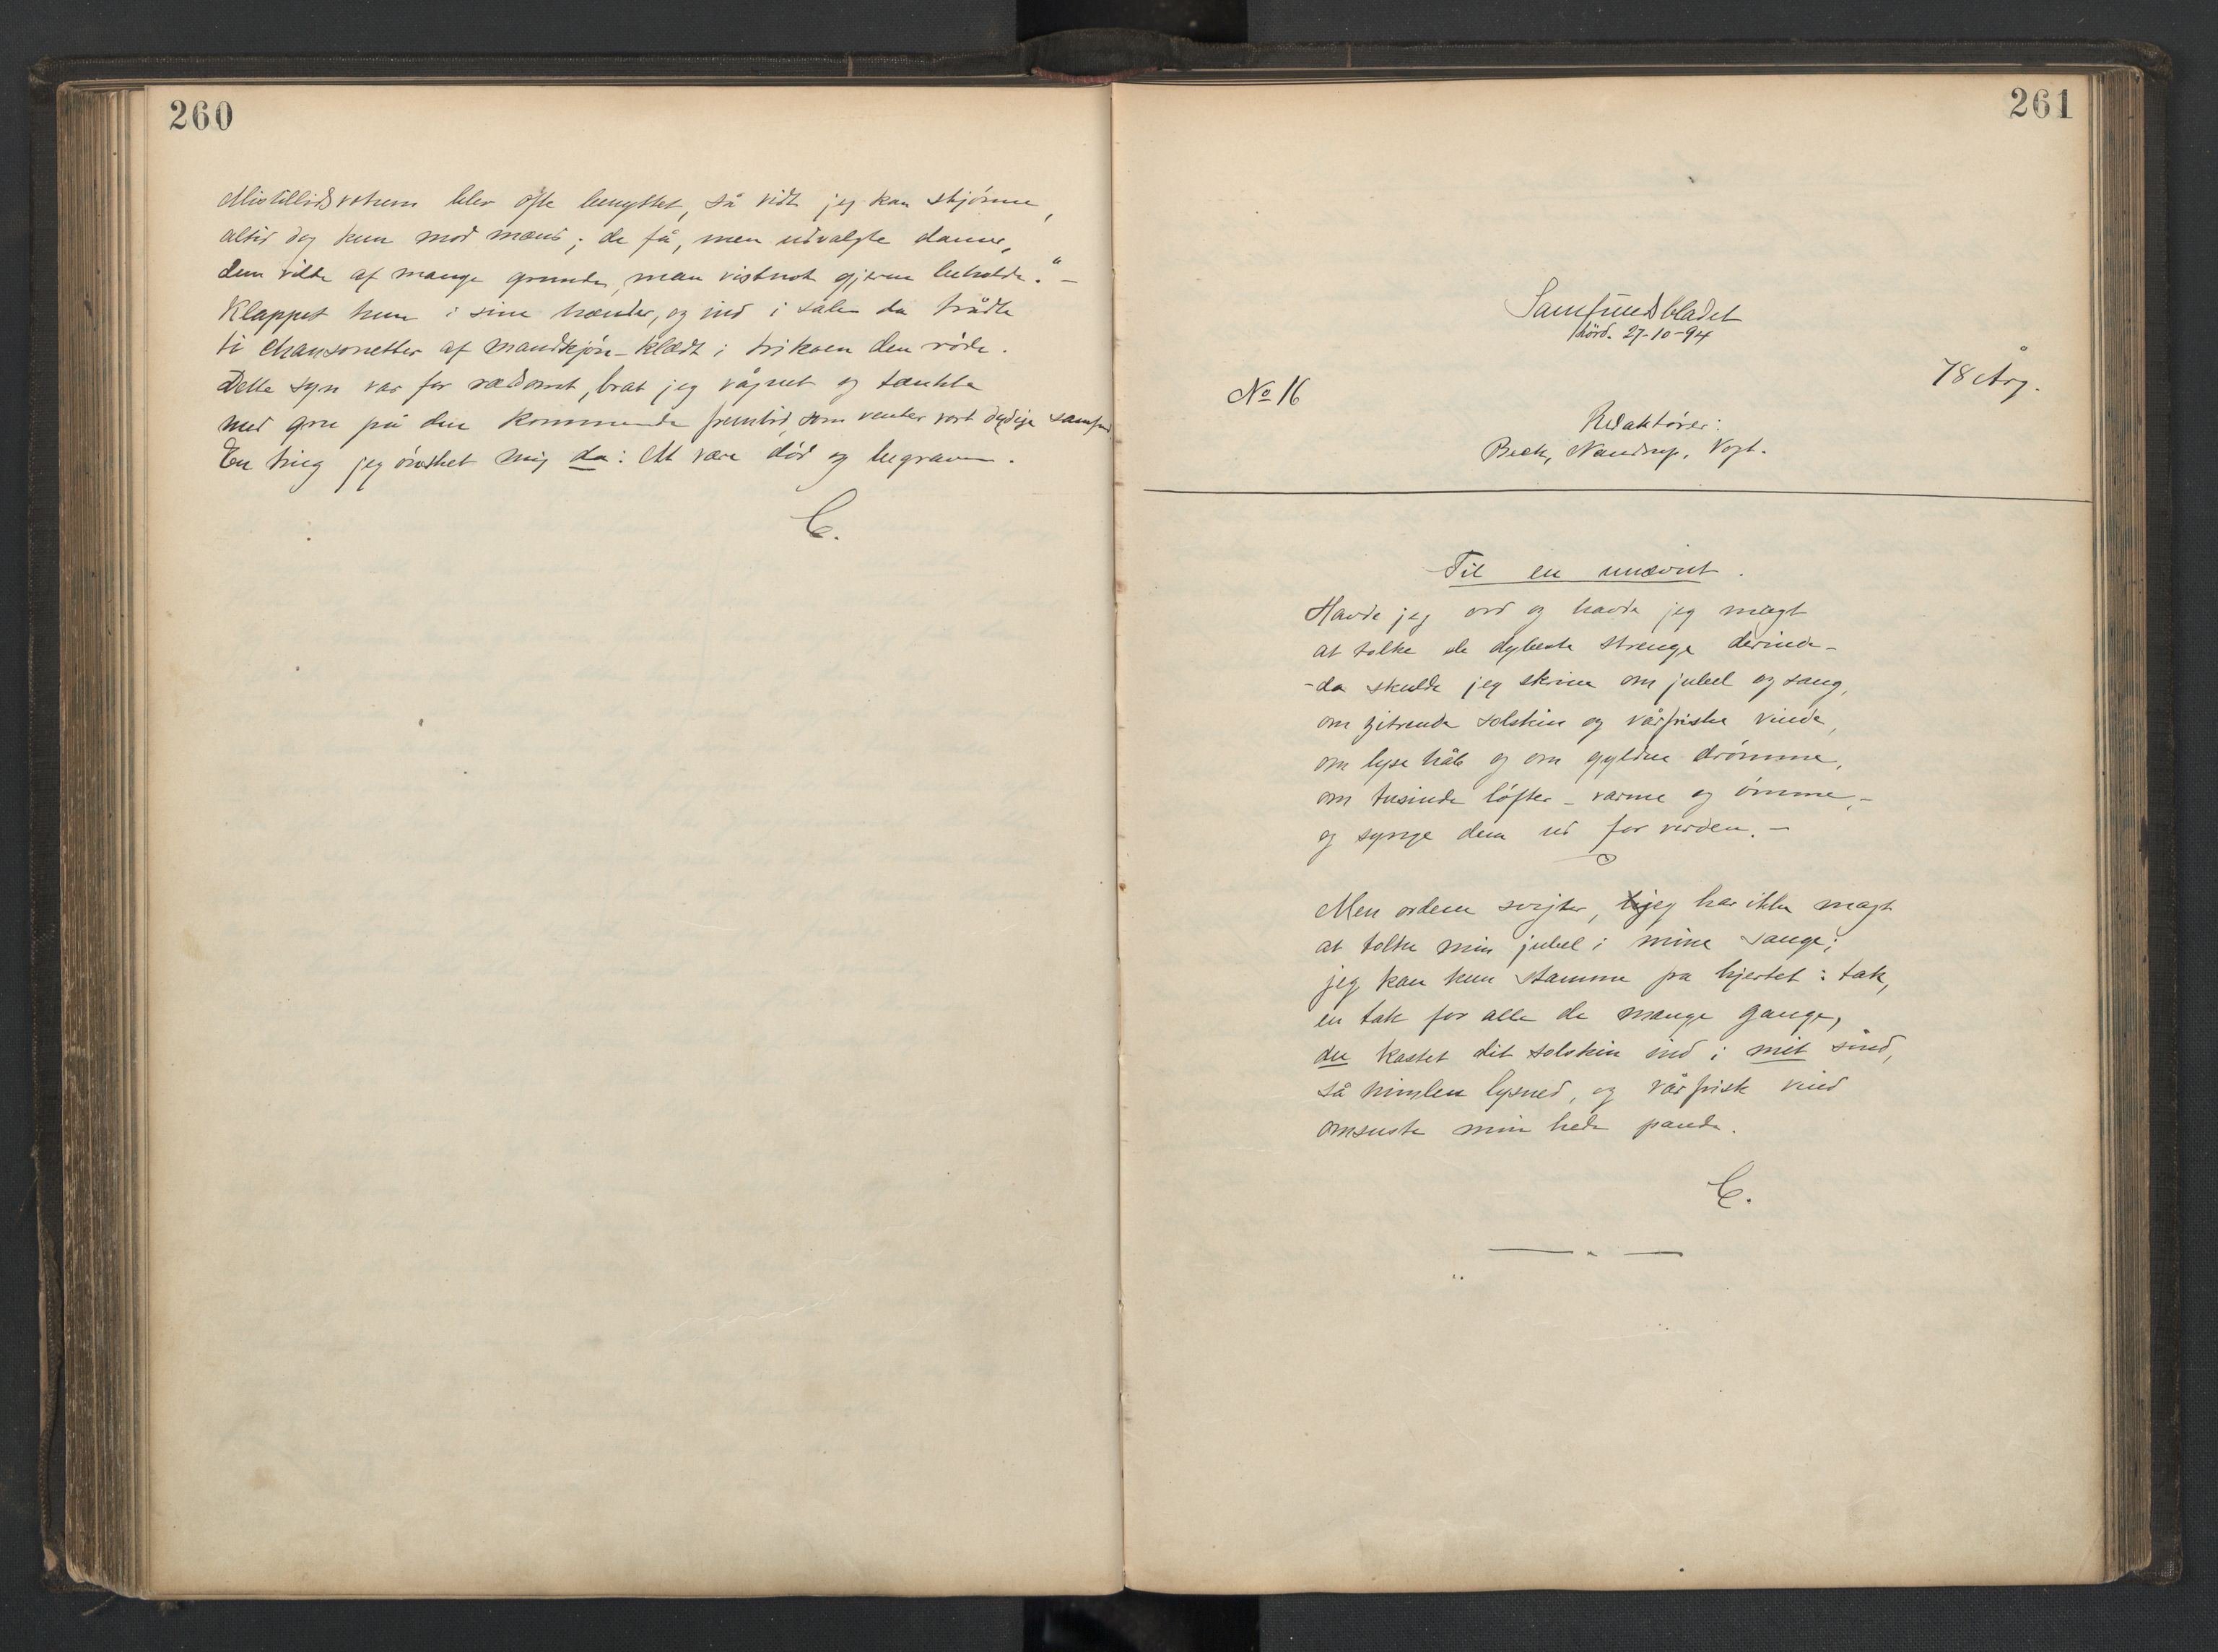 260
Mistillidsvotum blev ofte benyttet, så vidt jeg kan skjønne,
altid dog kun mod mænd; de få, men udvalgte damer,
dem vilde af mange grunde, man vistnok gjerne beholde." -
Klappet hun i sine hænder, og ind i salen da trådte
ti chansonetter af mandkjøn - klædt i trikoen den røde.
Dette syn var for rædsomt, brat jeg vågnet og tænkte
med gru på den kommende fremtid, som venter vort dydige samfund
En ting jeg ønsket mig da: At være død og begraven.
C.
261
Samfundsbladet
lörd. 27-10-94
No 16
78 Årg.
Redaktører:
Beck, Nandrup, Vogt.
Til en unævnt.
Havde jeg ord og havde jeg magt
at tolke de dybeste strenge derinde -
- da skulde jeg skrive om jubel og sang,
om zitrende solskin og vårfriske vinde,
om lyse håb og om gyldne drømme,
om tusinde løfter - varme og ømme, -
og synge dem ud for verden. -
Men ordene svigter, jeg har ikke magt
at tolke min jubel i mine sange;
jeg kan kun stamme fra hjertet: tak,
en tak for alle de mange gange,
du kastet dit solskin ind i mit sind,
så himlen lysned, og vårfrisk vind
omsuste min hede pande.
C.